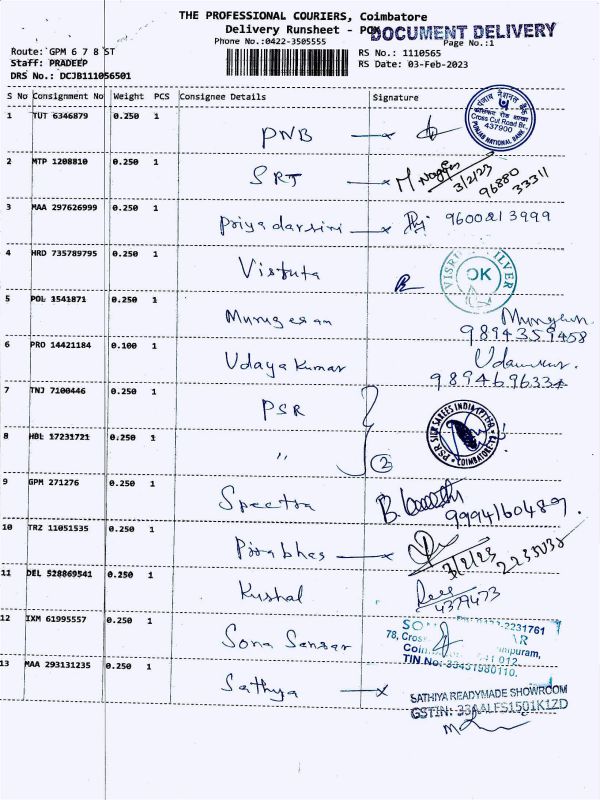 THE PROFESSIONAL COURIERS, Coimbatore
Delivery Runsheet - POD
DOCUMENT DELIVERY
Phone No.:0422-3505555
Page No.:1
Route: GPM 6 7 8 ST
RS No.: 1110565
Staff: PRADEEP
RS Date: 03-Feb-2023
DRS No.: DCJB111056501
S No Consignment No Weight PCS Consignee Details Signature
1 TUT 6346879 0.250 1 PNB
Cross Cut Road Br.
437900
PUNJAB NATIONAL BANK
2 MTP 1208810 0.250 1 SRT
3/2/23
96880
33311
3 MAA 297626999 0.250 1 Priyadarsini 9600213999
4 HRD 735789795 0.250 1 Visruta
OK
5 POL 1541871 0.250 1 Murugesan
9894359458
6 PRO 14421184 0.100 1 Udaya Kumar
9894696334
7 TNJ 7100446 0.250 1 PSR
PSR SILK SAREES INDIA (P) LTD
COIMBATORE
8 HBL 17231721 0.250 1 〃
2
9 GPM 271276 0.250 1 Spectra
9994160489.
10 TRZ 11051535 0.250 1 Pirabhas
3/2/23
11 DEL 528869541 0.250 1 Kushal
4379473
12 IXM 61995557 0.250 1 Sona Sansar
2231761
78, Cross
TIN No: 33451980110.
13 MAA 293131235 0.250 1 Sathya
SATHIYA READYMADE SHOWROOM
GSTIN: 33AALFS1501K1ZD